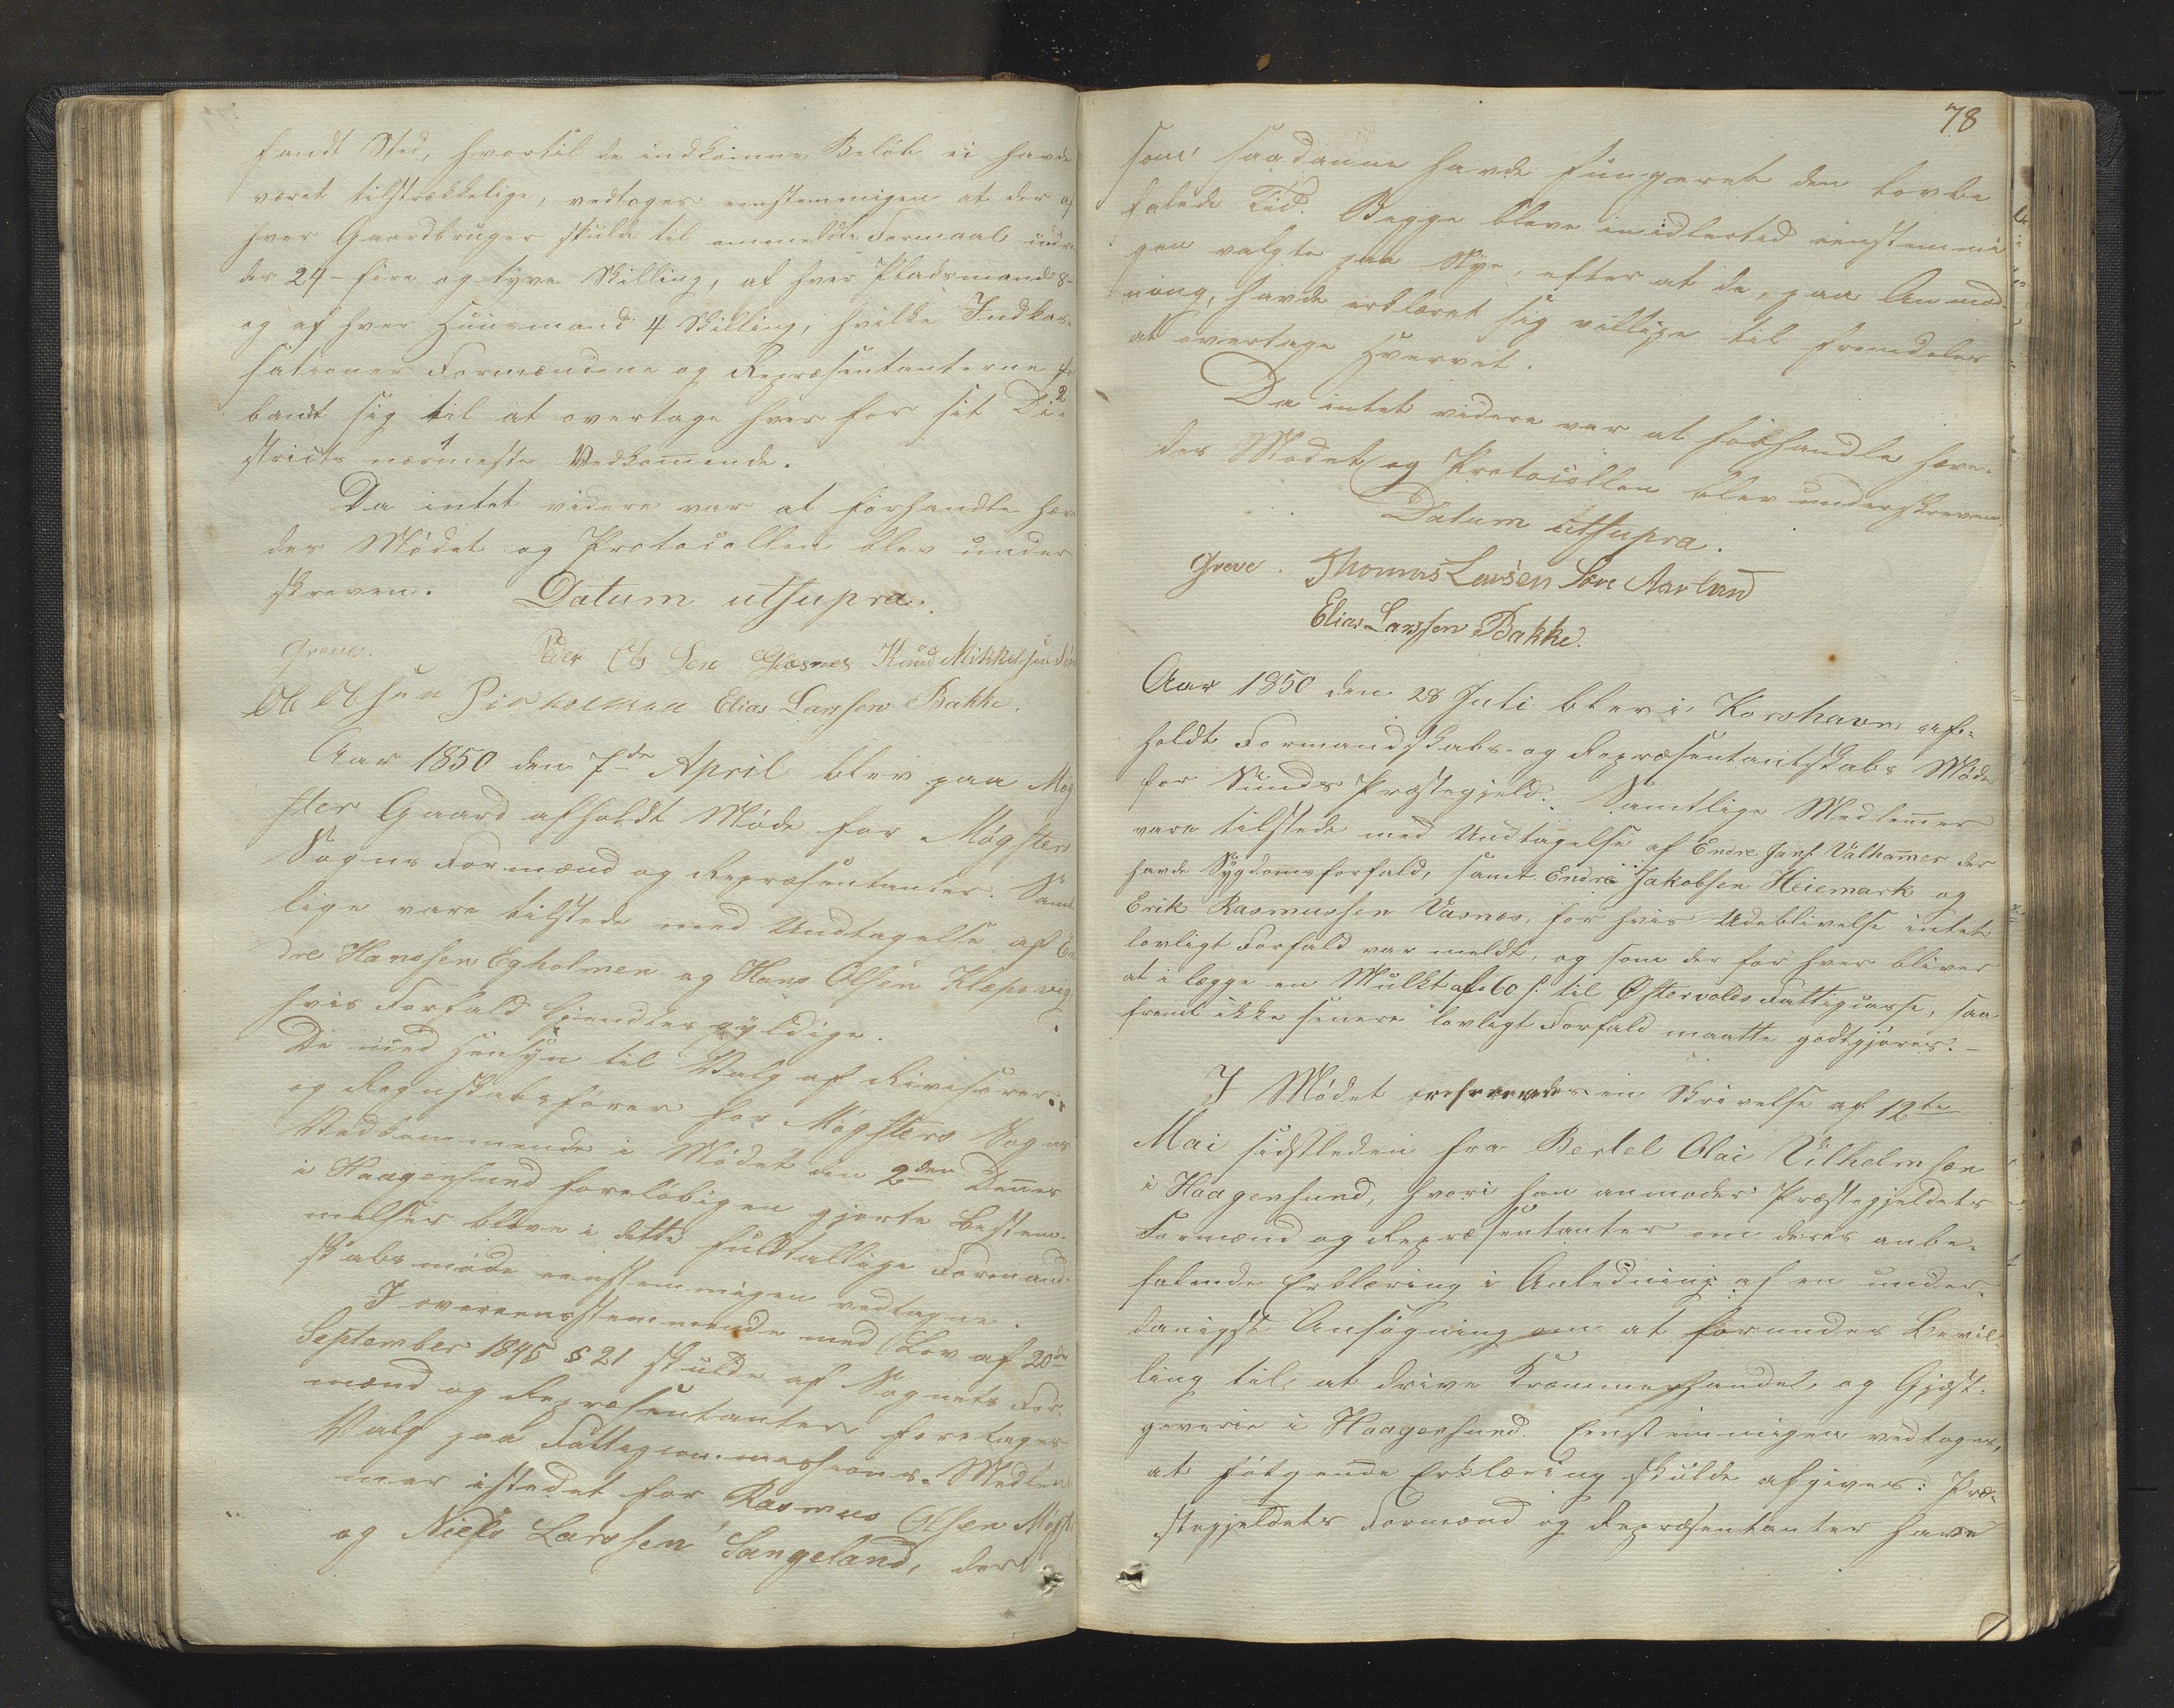 fandt Sted, hvortil de indkomne Beløb ei havde
været tilstrækkelige, vedtoges eenstemmigen at der af
hver Gaardbruger skulde til ommeldte Formaal udre-
des 24 - fire og tyve Skilling, af hver Pladsmand 8 -
og af hver Huusmand 4 Skilling, hvilke Indkas-
sationer Formændene og Repræsentanterne for
bandt sig til at overtage hver for sit Di-
stricts nærmeste Vedkommende.
Da intet videre var at forhandle hæve
des Mødet og Protocollen blev under
skreven. Datum utsupra.
Greve. Peder Ols Sen Glæsnes Knud Mikkelsen
Ol Olsen Elias Larssen Bakke.
Aar 1850 den 7de April blev paa Møg
ster Gaard afholdt Møde for Møgster
Sogns Formænd og Repræsentanter. Samt
lige vare tilstede med Undtagelse af En
dre Hanssen Egholmen og Hans Olsen Klepsvig
hvis Forfald kjendtes gyldige.
De med Hensyn til Valg af Revisorer
og Regnskabsfører for Møgsters Sogns
Vedkommende i Mødet den 2den Dennes
i Haagensund foreløbigen gjorte Bestem-
melser bleve i dette fuldtallige Formand-
skabsmøde eenstemmigen vedtagne.
I overeensstemmende med Lov af 20de
September 1845 § 21 skulde af Sognets For-
mænd og Repræsentanter foretages
Valg paa Fattigcommissions-Medlem
mer istedet for Rasmus Olsen Møgst
og Niels Larssen Sangeland, der
78
som saadanne havde fungeret den lovbe
falede Tid. Begge bleve imidlertid eenstemmi
gen valgte paa Nye, efter at de, paa Anmod-
ning, havde erklæret sig villige til fremdeles
at overtage Hvervet.
Da intet videre var at forhandle hæve-
des Mødet og Protocollen blev underskreven.
Datum utsupra.
Greve. Thomas Larsen Søre Aarland
Elias Larssen Bakke.
Aar 1850 den 28 Juli blev i Korshavn af-
holdt Formandskabs- og Repræsentantskabs Møde
for Sunds Præstegjeld. Samtlige Medlemmer
vare tilstede med Undtagelse af Endre Jans. Valhamer der
havde Sygdomsforfald, samt Endre Jakobsen Heiemark og
Erik Rasmussen Vasnes, for hvis Udeblivelse intet
lovligt Forfald var meldt, og som der for hver bliver
at i lægge en Mulkt af 60 s. til Østervolds Fattigcasse, saa
fremt ikke senere lovligt Forfald maatte godtgjøres. -
I Mødet refereredes en Skrivelse af 12te
Mai sidstleden fra Bertel Olai Vilhelmsen
i Haagensund, hvori han anmoder Præstegjeldets
Formænd og Repræsentanter om deres anbe-
falende Erklæring i Anledning af en under-
danigst Ansøgning om at forundes Bevil-
ling til at drive Kræmmerhandel og Gjæst-
geverie i Haagensund. Eenstemmigen vedtoges,
at følgende Erklæring skulde afgives: Præ-
stegjeldets Formænd og Repræsentanter have